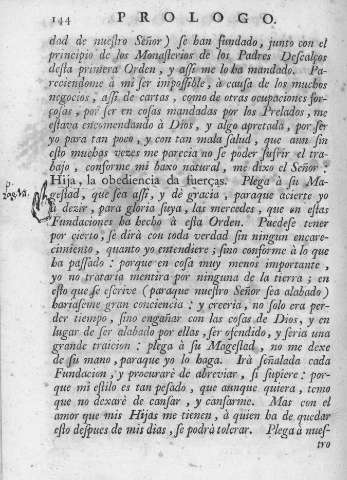 144 PROLOGO.
dad de nuestro Señor) se han fundado, junto con el
principio de los Monasterios de los Padres Descalços
desta primera Orden, y assi me lo ha mandado. Pa-
reciendome à mi ser impossible, à causa de los muchos
negocios, assi de cartas, como de otras ocupaciones for-
çosas, por ser en cosas mandadas por los Prelados, me
estava encomendando à Dios, y algo apretada, por ser
yo para tan poco, y con tan mala salud, que aun sin
esto muchas vezes me parecia no se poder sufrir el tra-
bajo, conforme mi baxo natural, me dixo el Señor:
Hija, la obediencia da fuerças. Plega à su Ma-
gestad, que sea assi, y dè gracia, paraque acierte yo
à dezir, para gloria suya, las mercedes, que en estas
Fundaciones ha hecho à esta Orden. Puedese tener
por cierto, se dirà con toda verdad sin ningun encare-
cimiento, quanto yo entendiere; sino conforme à lo que
ha passado: porque en cosa muy menos importante,
yo no trataria mentira por ninguna de la tierra; en
esto que se escrive (paraque nuestro Señor sea alabado)
hariaseme gran conciencia: y creeria, no solo era per-
der tiempo, sino engañar con las cosas de Dios, y en
lugar de ser alabado por ellas, ser ofendido, y seria una
grande traicion: plega à su Magestad, no me dexe
de su mano, paraque yo lo haga. Irà señalada cada
Fundacion, y procurarè de abreviar, si supiere: por-
que mi estilo es tan pesado, que aunque quiera, temo
que no dexarè de cansar, y cansarme. Mas con el
amor que mis Hijas me tienen, à quien ha de quedar
esto despues de mis dias, se podrà tolerar. Plega à nues-
tro